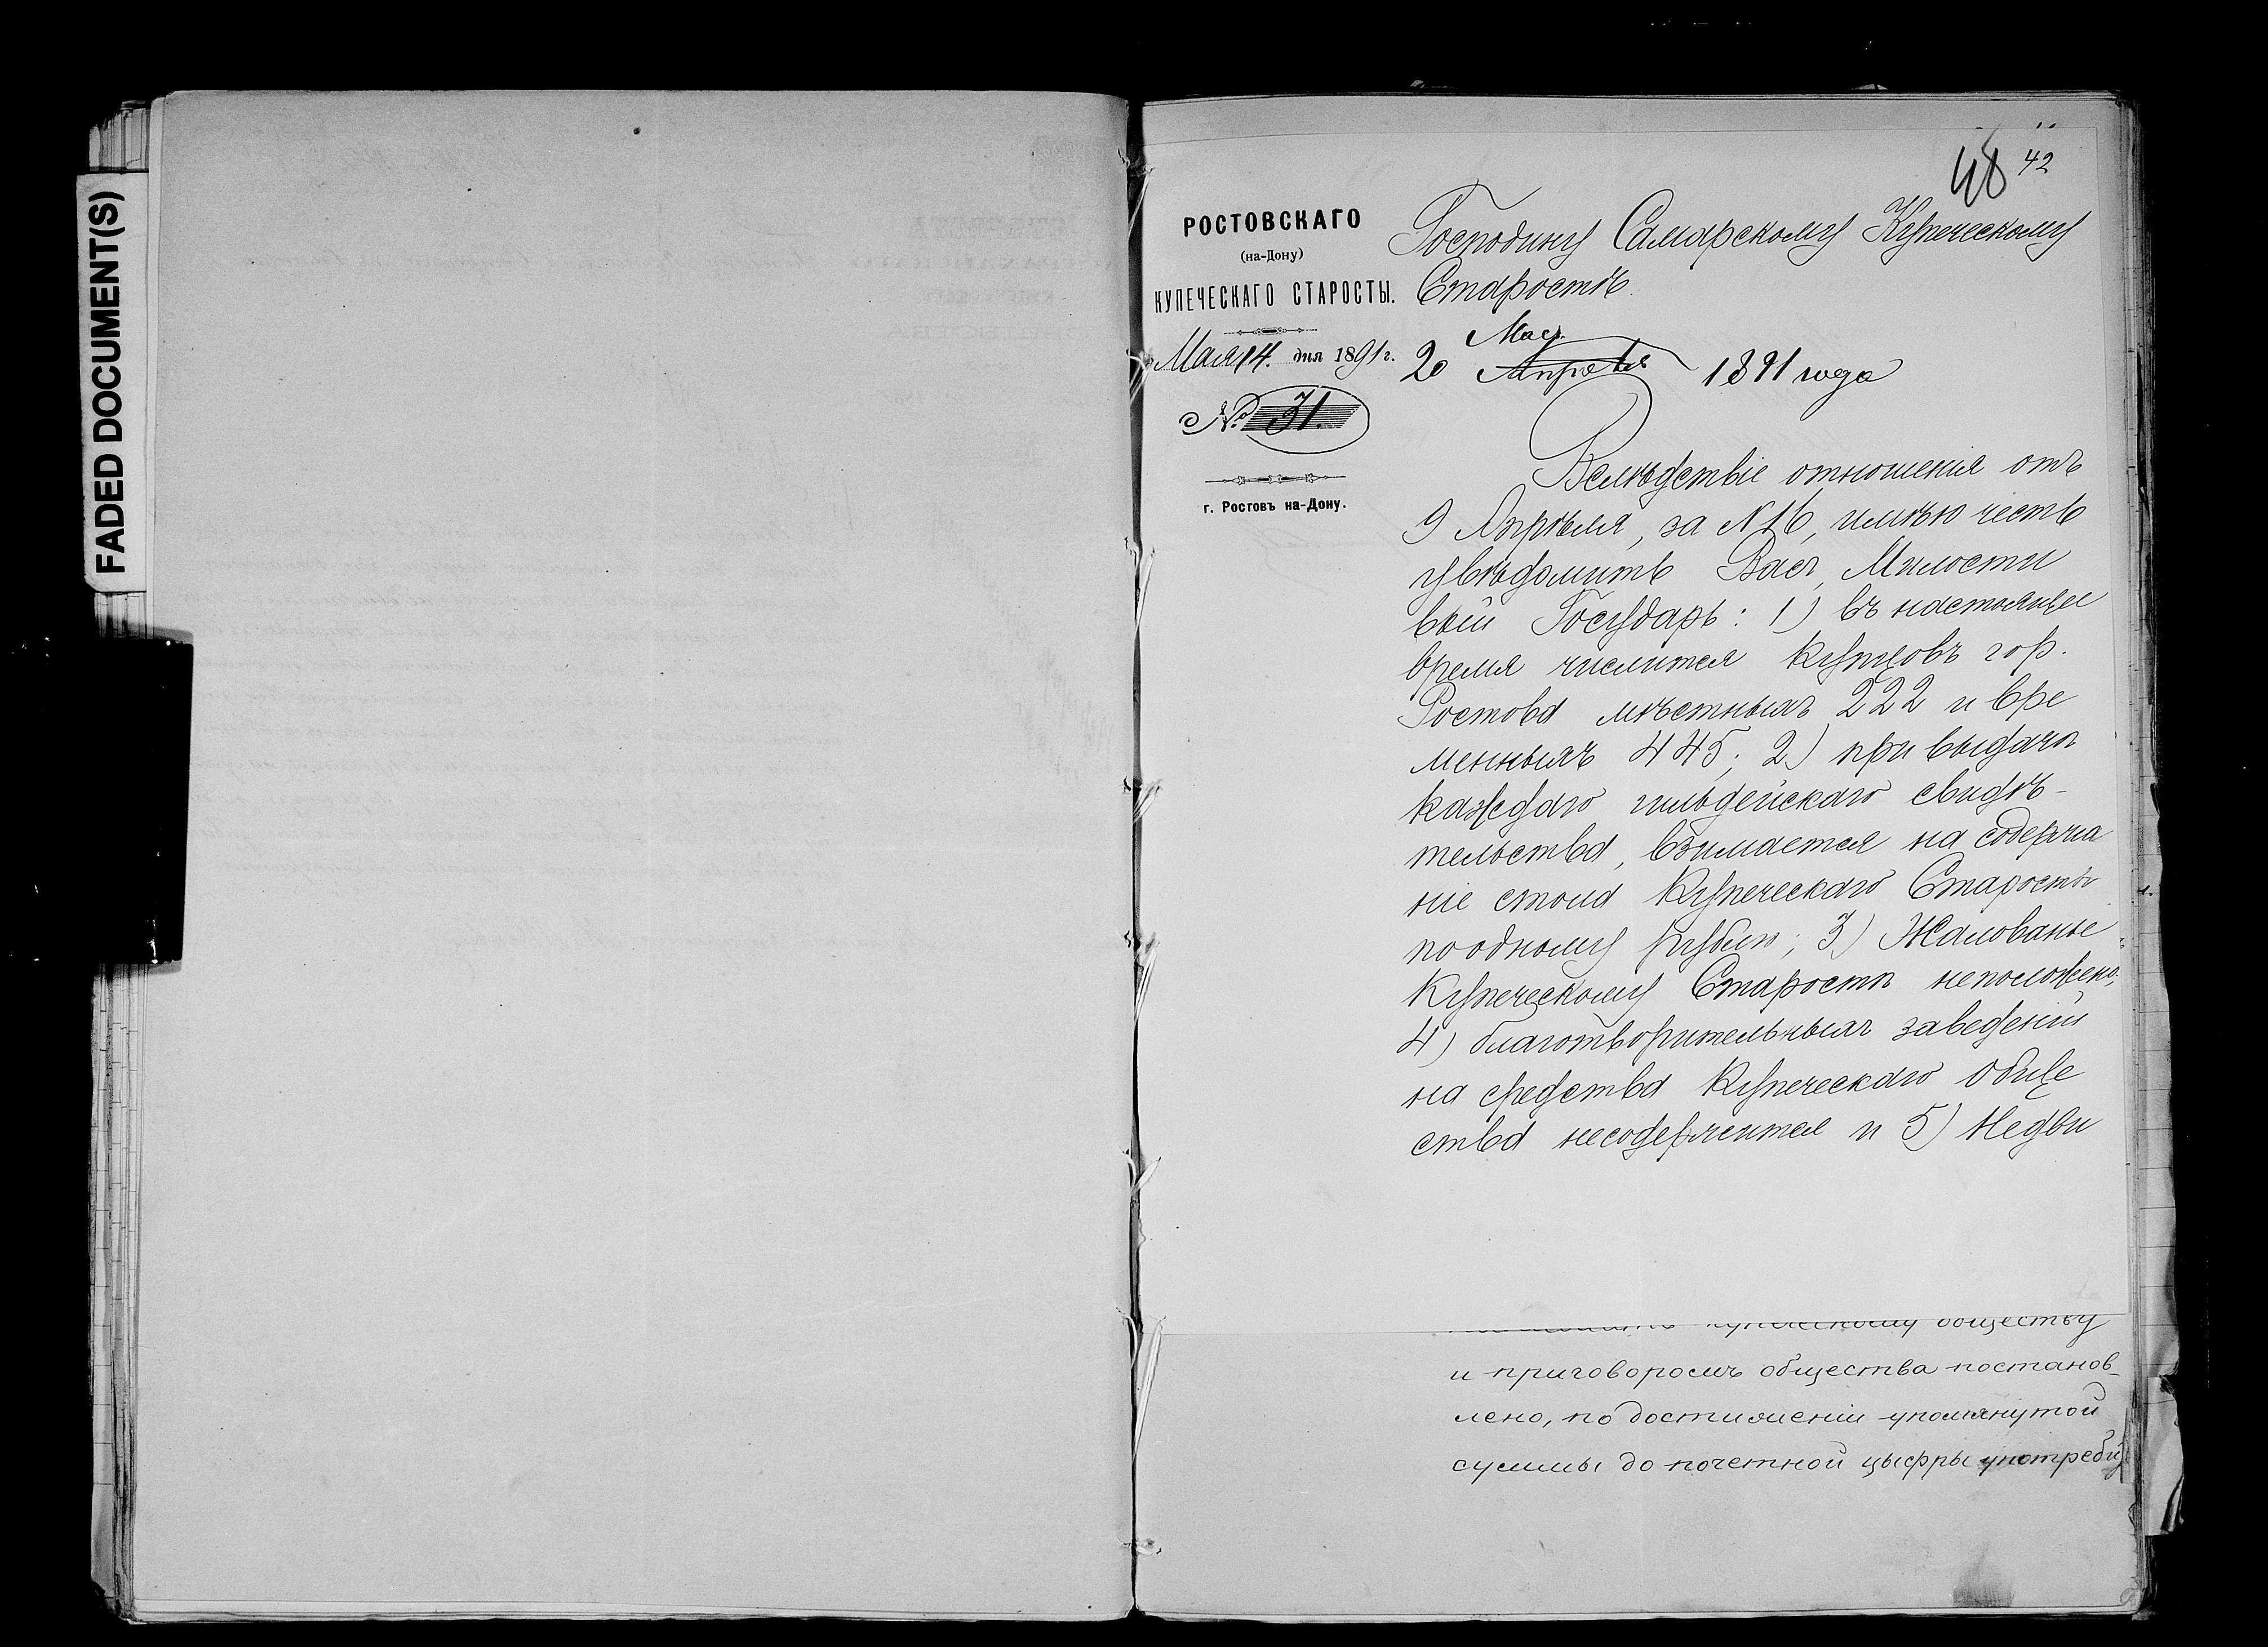 FADED DOCUMENT(S)
48 42
РОСТОВСКАГО
(на-Дону)
КУПЕЧЕСКАГО СТАРОСТЫ.
Мая 14. дня 1891 г.
№ 31.
г. Ростовъ на-Дону.
Господину Самарскому Купеческому
Старостѣ.
Мая
20 Апрѣля 1891 года
Вслѣдствіе отношенія отъ
9 Апрѣля, за N 16, имѣю честь
увѣдомить Васъ, Милости
вый Государь: 1) въ настоящее
время числится Купцовъ гор.
Ростова мѣстныхъ 222 и вре
менныхъ 445; 2) при выдачѣ
каждаго гильдейскаго свидѣ-
тельства, взимается на содержа
ніе стола Купеческаго Старосты
по одному рублю; 3) Жалованье
Купеческому Старостѣ неположено;
4) благотворительныхъ заведеній
на средства Купеческаго Обще
ства несодержится и 5) Недви
купеческому обществу
и приговоромъ общества постанов-
лено, по достиженіи упомянутой
суммы до почетной цыфры употреби